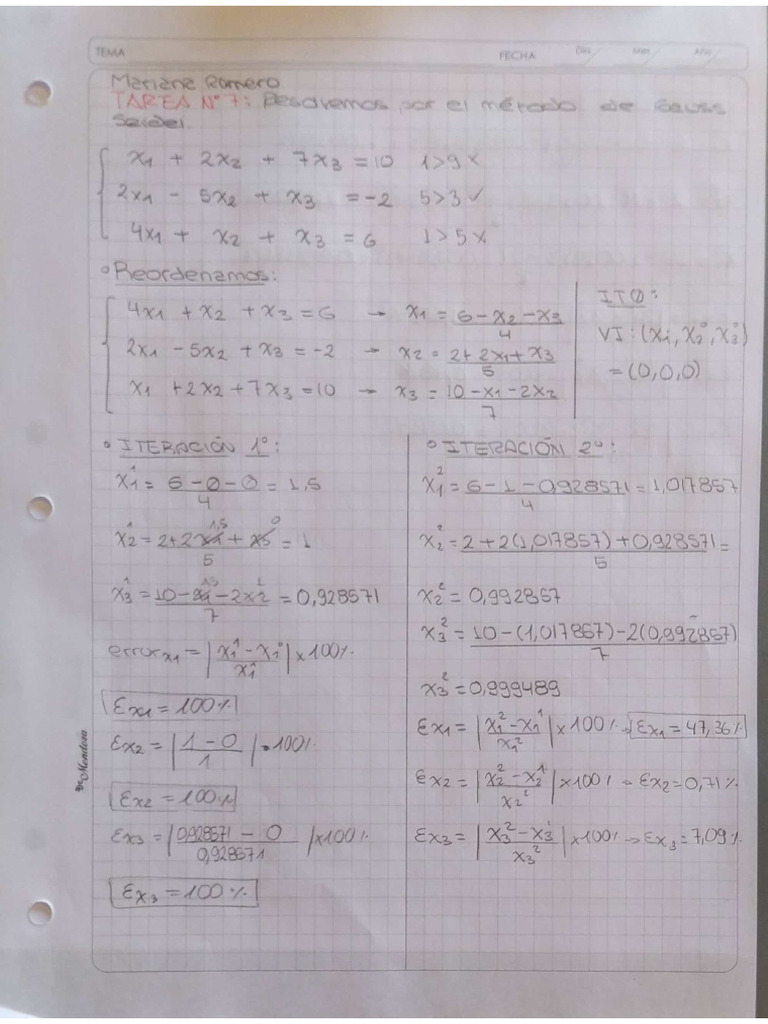 TEMA FECHA DIA/ MES/ AÑO/
Mariana Romero
TAREA N°7: Resolvemos por el método de Gauss
Seidel.
x1 + 2x2 + 7x3 = 10 1>9 x
2x1 - 5x2 + x3 = -2 5>3 ✓
4x1 + x2 + x3 = 6 1>5 x
• Reordenamos:
4x1 + x2 + x3 = 6 → x1 = (6 - x2 - x3)/4
2x1 - 5x2 + x3 = -2 → x2 = (2 + 2x1 + x3)/5
x1 + 2x2 + 7x3 = 10 → x3 = (10 - x1 - 2x2)/7
IT0:
VI: (x1°, x2°, x3°)
= (0,0,0)
• ITERACIÓN 1°:
x1^1 = (6 - 0 - 0)/4 = 1,5
x2^1 = (2 + 2x1 + x3)/5 = 1
1,5 0
x3^1 = (10 - x1 - 2x2)/7 = 0,928571
1,5 1
error x1 = |(x1^1 - x1°)/x1^1| x 100%
Ɛx1 = 100%
Ɛx2 = |(1 - 0)/1| • 100%
Ɛx2 = 100%
Ɛx3 = |(0,928571 - 0)/0,928571| x100%
Ɛx3 = 100%
• ITERACIÓN 2°:
x1^2 = (6 - 1 - 0,928571)/4 = 1,017857
x2^2 = (2 + 2(1,017857) + 0,928571)/5 =
x2^2 = 0,992857
x3^2 = (10 - (1,017857) - 2(0,992857))/7
x3^2 = 0,999489
Ɛx1 = |(x1^2 - x1^1)/x1^2| x 100% → Ɛx1 = 47,36%
Ɛx2 = |(x2^2 - x2^1)/x2^2| x100% → Ɛx2 = 0,71%
Ɛx3 = |(x3^2 - x3^1)/x3^2| x100% → Ɛx3 = 7,09%
Mendoza